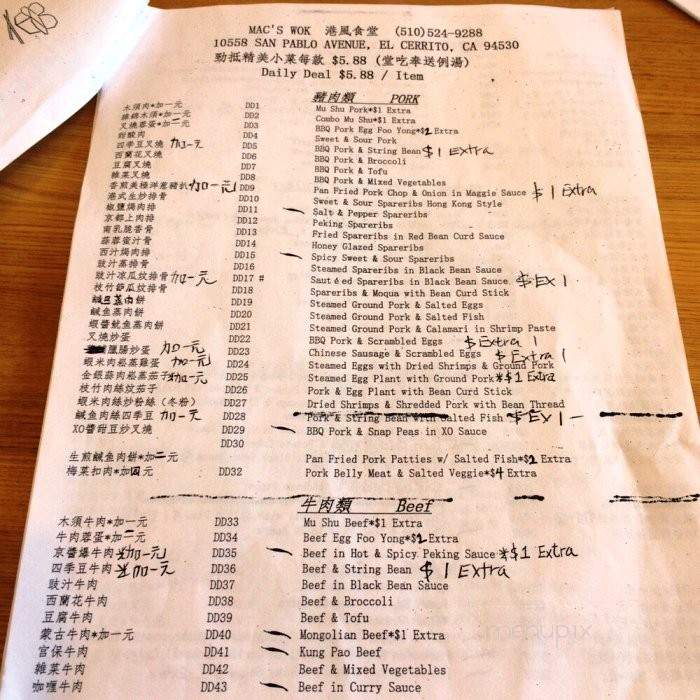 MAC'S WOK 港風食堂 (510)524-9288
10558 SAN PABLO AVENUE, EL CERRITO, CA 94530
勁抵精美小菜每款 $5.88 (堂吃奉送例湯)
Daily Deal $5.88 / Item
豬肉類 PORK
木須肉*加一元 DD1 Mu Shu Pork*$1 Extra
雜錦木須*加一元 DD2 Combo Mu Shu*$1 Extra
叉燒蓉蛋*加二元 DD3 BBQ Pork Egg Foo Yong*$2 Extra
甜酸肉 DD4 Sweet & Sour Pork
四季豆叉燒 加一元 DD5 BBQ Pork & String Bean $1 Extra
西蘭花叉燒 DD6 BBQ Pork & Broccoli
豆腐叉燒 DD7 BBQ Pork & Tofu
雜菜叉燒 DD8 BBQ Pork & Mixed Vegetables
香煎美極洋葱豬扒 加一元 DD9 Pan Fried Pork Chop & Onion in Maggie Sauce $1 Extra
港式生炒排骨 DD10 Sweet & Sour Spareribs Hong Kong Style
椒鹽焗肉排 DD11 Salt & Pepper Spareribs
京都上肉排 DD12 Peking Spareribs
南乳脆香骨 DD13 Fried Spareribs in Red Bean Curd Sauce
蒜蓉蜜汁骨 DD14 Honey Glazed Spareribs
西汁焗肉排 DD15 Spicy Sweet & Sour Spareribs
豉汁蒸排骨 DD16 Steamed Spareribs in Black Bean Sauce
豉汁涼瓜炆排骨 加一元 DD17 # Sautéed Spareribs in Black Bean Sauce $Ex 1
枝竹節瓜炆排骨 DD18 Spareribs & Moqua with Bean Curd Stick
鹹旦蒸肉餅 DD19 Steamed Ground Pork & Salted Eggs
鹹魚蒸肉餅 DD20 Steamed Ground Pork & Salted Fish
蝦醬魷魚蒸肉餅 DD21 Steamed Ground Pork & Calamari in Shrimp Paste
叉燒炒蛋 DD22 BBQ Pork & Scrambled Eggs $Extra 1
臘腸炒蛋 加一元 DD23 Chinese Sausage & Scrambled Eggs $Extra 1
蝦米肉崧蒸雞蛋 加一元 DD24 Steamed Eggs with Dried Shrimps & Ground Pork
金銀蒜肉崧蒸茄子*加一元 DD25 Steamed Egg Plant with Ground Pork*$1 Extra
枝竹肉絲炆茄子 DD26 Pork & Egg Plant with Bean Curd Stick
蝦米肉絲炒粉絲 (冬粉) DD27 Dried Shrimps & Shredded Pork with Bean Thread
鹹魚肉絲四季豆 加一元 DD28 Pork & String Bean with Salted Fish $Ex 1
XO醬甜豆炒叉燒 DD29 BBQ Pork & Snap Peas in XO Sauce
DD30
生煎鹹魚肉餅*加二元 Pan Fried Pork Patties w/ Salted Fish*$2 Extra
梅菜扣肉*加四元 DD32 Pork Belly Meat & Salted Veggie*$4 Extra
牛肉類 Beef
木須牛肉*加一元 DD33 Mu Shu Beef*$1 Extra
牛肉蓉蛋*加二元 DD34 Beef Egg Foo Yong*$2 Extra
京醬爆牛肉*加一元 DD35 Beef in Hot & Spicy Peking Sauce*$1 Extra
四季豆牛肉*加一元 DD36 Beef & String Bean $1 Extra
豉汁牛肉 DD37 Beef in Black Bean Sauce
西蘭花牛肉 DD38 Beef & Broccoli
豆腐牛肉 DD39 Beef & Tofu
蒙古牛肉*加一元 DD40 Mongolian Beef*$1 Extra
宮保牛肉 DD41 Kung Pao Beef
雜菜牛肉 DD42 Beef & Mixed Vegetables
咖喱牛肉 DD43 Beef in Curry Sauce
menupix